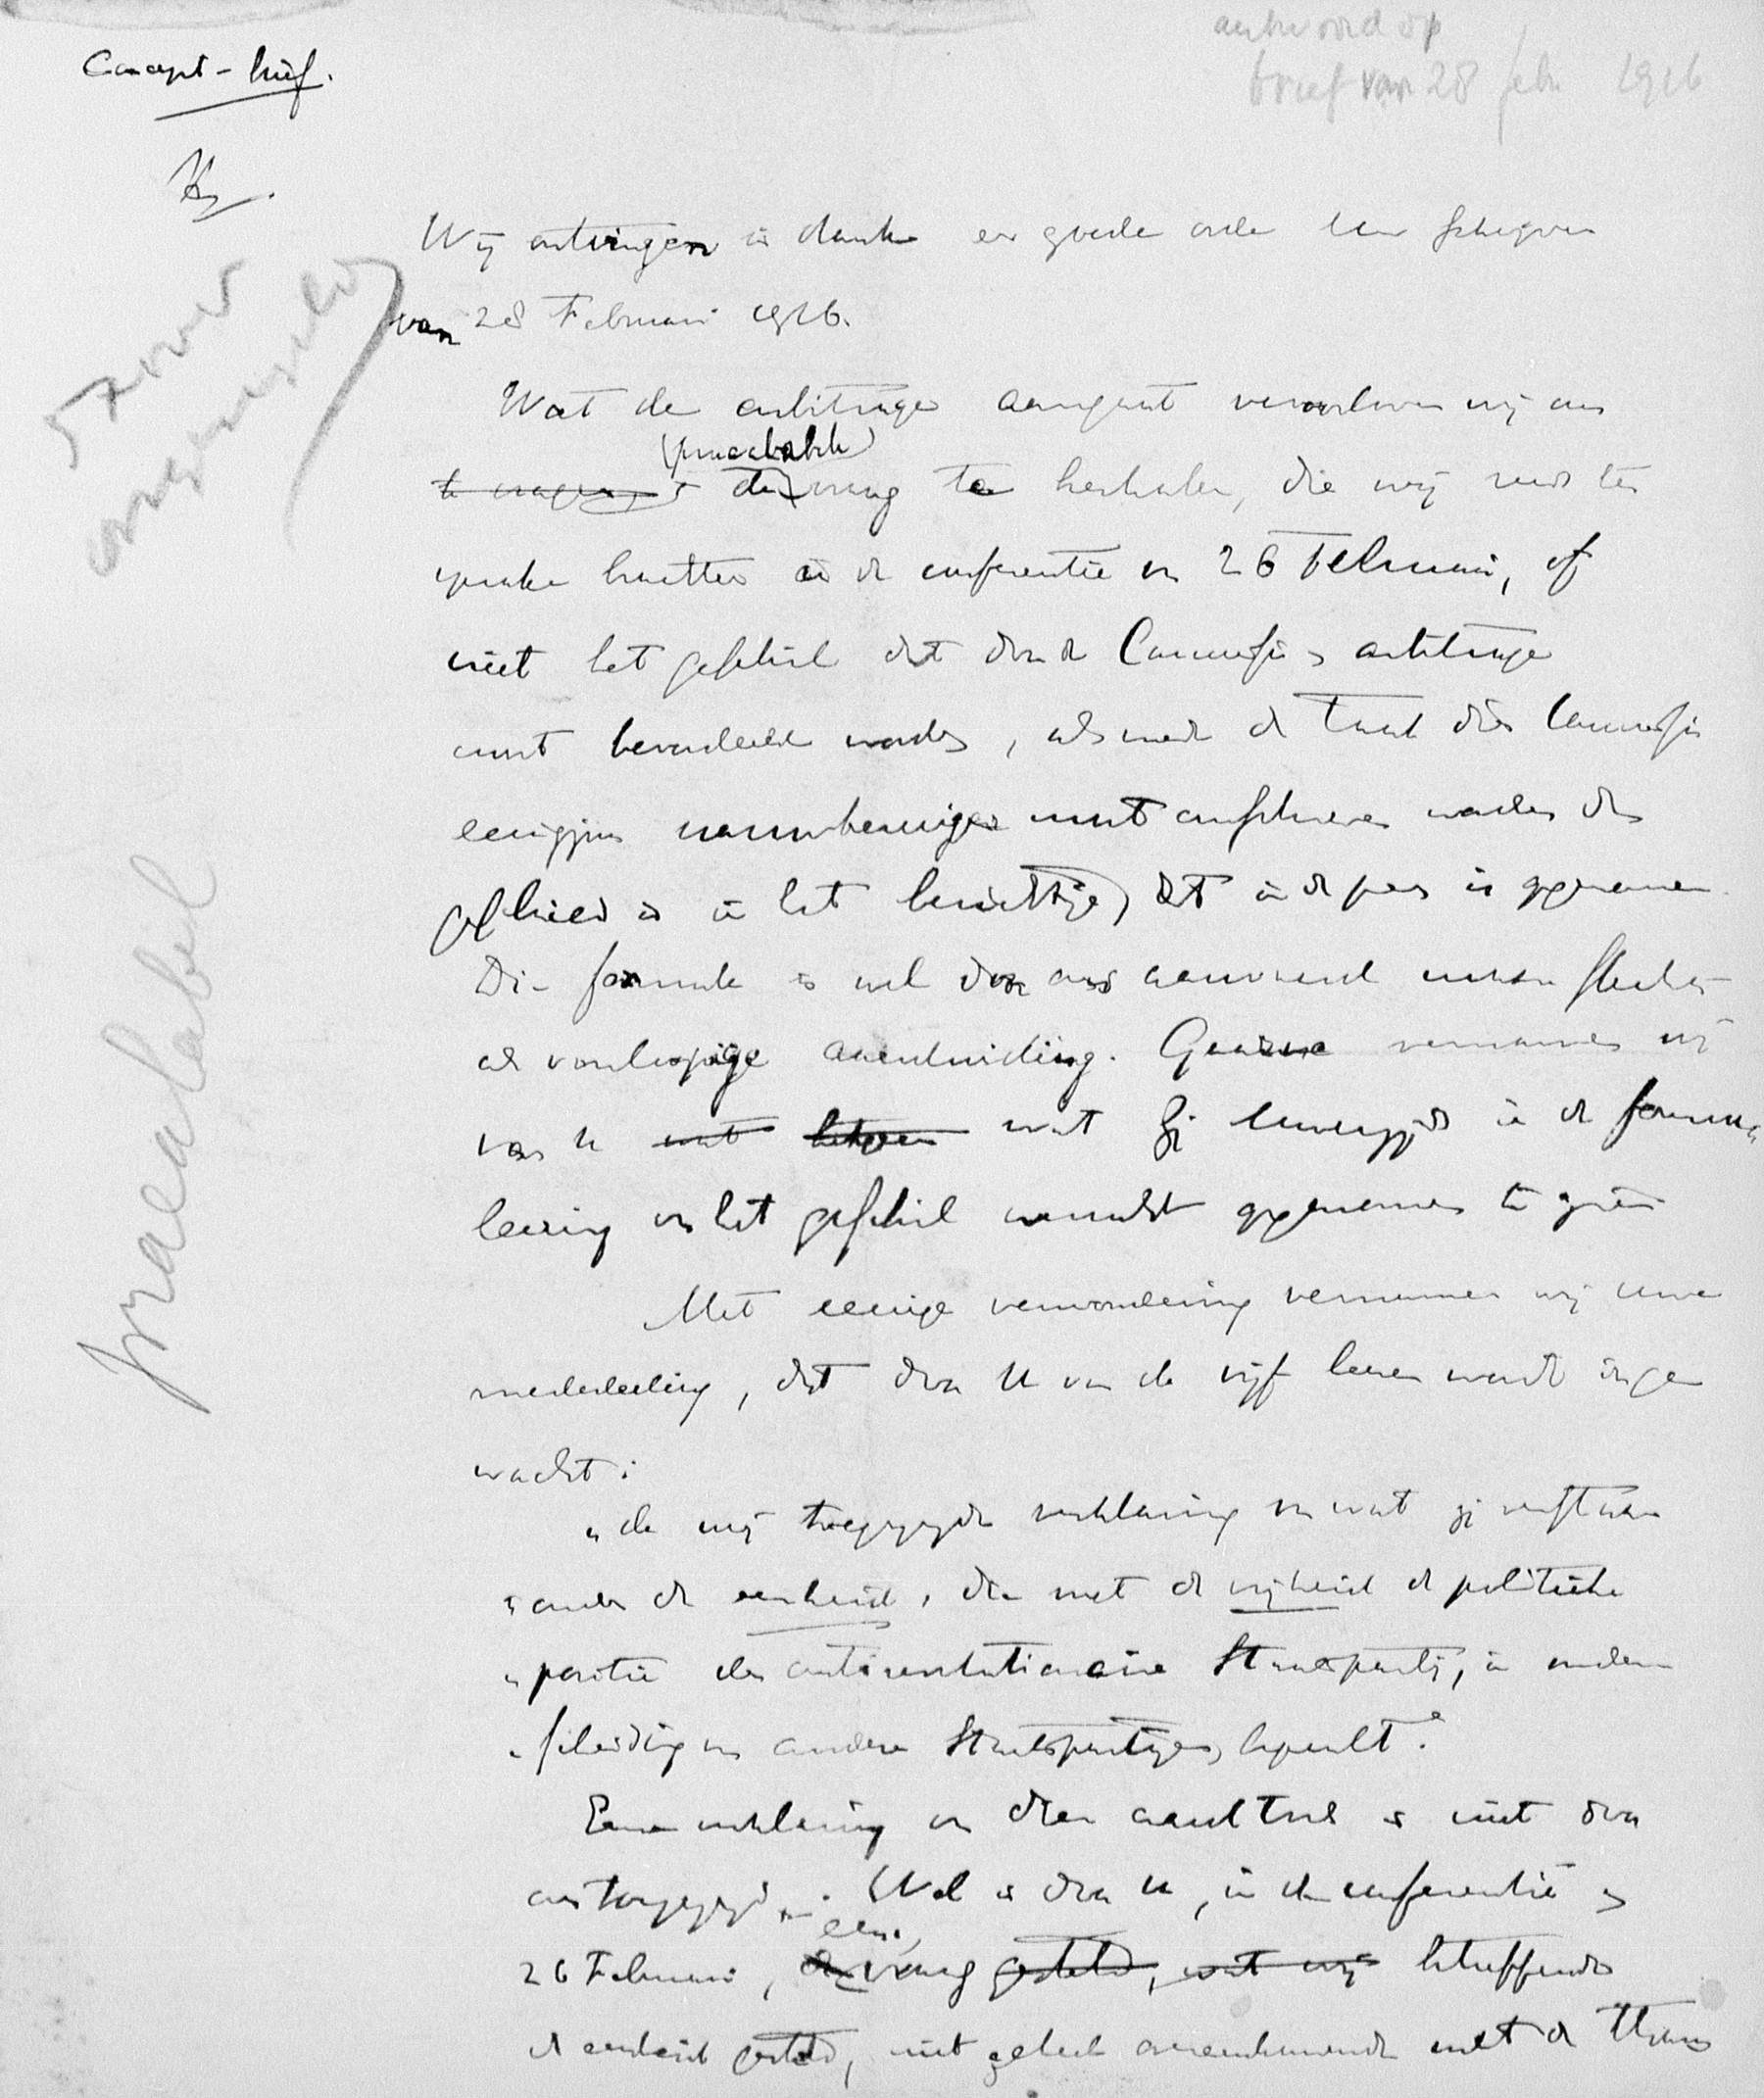 antwoord op
brief van 28 febr 1916
Concept-brief.
Wij ontvingen in dank en goede orde Uw schrijven
van 28 Februari 1916.
Wat de arbitrage aangaat veroorloven wij ons
(praealabele)
te vragen de vraag te herhalen, die wij reeds ter
sprake brachten in de conferentie van 26 Februari, of
niet het geschil dat door de Commissie van arbitrage
moet beoordeeld worden, als mede de taak dier Commissie
eenigszins nauwkeuriger moet omschreven worden dan
geschied is in het berichtje, dat in de pers is opgenomen.
Die formule is wel door ons aanvaard maar slechts
als voorloopige aanduiding. Gaarne vernamen wij
van U wat wat Gij Uwerzijds in de formu-
leering van het geschil wenscht opgenomen te zien
Met eenige verwondering vernamen wij Uwe
mededeeling, dat door U van de vijf heeren wordt inge
wacht:
„de mij toegezegde verklaring van wat zij verstaan
„onder de eenheid, die met de vrijheid de politieke
„positie der antirevolutionaire Staatspartij, in onder-
„scheiding van andere Staatspartijen, bepaalt."
Eene verklaring van dien aard toch is niet door
ons toegezegd. Wel is door U, in de conferentie van
een
26 Februari, de vraag gesteld, wat wij betreffende
de eenheid gesteld, niet geheel overeenkomende met de thans
praealabel